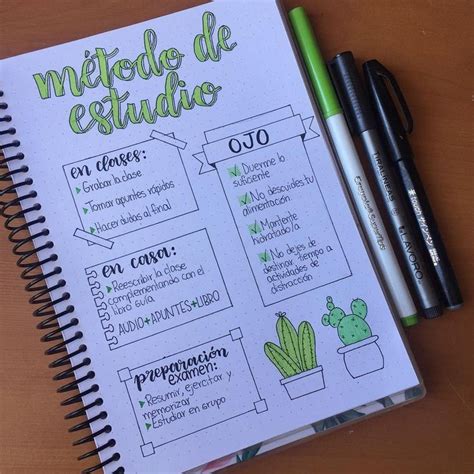 método de
estudio
en clases:
Grabar la clase
Tomar apuntes rápidos
Hacer dudas al final
en casa:
Reescribir la clase
complementando con el
libro guía.
AUDIO+APUNTES+LIBRO
preparación
examen:
Resumir, ejercitar y
memorizar
Estudiar en grupo
OJO
Duerme lo
suficiente
No descuides tu
alimentación
Mantente
hidratado/a
No dejes de
destinar tiempo a
actividades de
distracción
TIRALINEAS
LAVORO